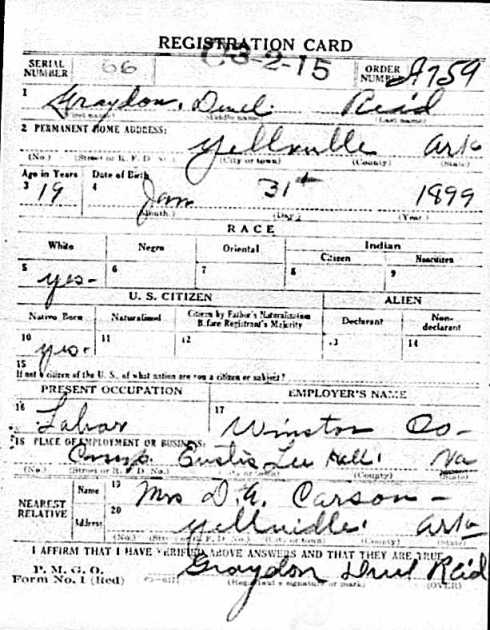 REGISTRATION CARD
SERIAL NUMBER 66 C3-2-15 ORDER NUMBER A759
1 Graydon Reid
(First name) (Middle name) (Last name)
2 PERMANENT HOME ADDRESS: Yellville Ark
(No.) (Street or R. F. D. No.) (City or town) (County) (State)
Age in Years Date of Birth
3 19 4 Jan 31st 1899
(Month.) (Day.) (Year)
RACE
White Negro Oriental Indian
Citizen Noncitizen
5 yes- 6 7 8 9
U. S. CITIZEN ALIEN
Native Born Naturalized Citizen by Father's Naturalization Before Registrant's Majority Declarant Non-declarant
10 yes. 11 12 13 14
15
If not a citizen of the U. S., of what nation are you a citizen or subject?
PRESENT OCCUPATION EMPLOYER'S NAME
16 Labor 17 Winston Co-
18 PLACE OF EMPLOYMENT OR BUSINESS:
Camp Eustis Lee Hall Va
(No.) (Street or R. F. D. No.) (City or town) (County) (State)
NEAREST RELATIVE Name 19 Mrs D. A. Carson-
Address 20 Yellville Ark
(No.) (Street or R. F. D. No.) (City or town) (County) (State)
I AFFIRM THAT I HAVE VERIFIED ABOVE ANSWERS AND THAT THEY ARE TRUE
P. M. G. O.
Form No. 1 (Red) Graydon Reid
(Registrant's signature or mark) (OVER)